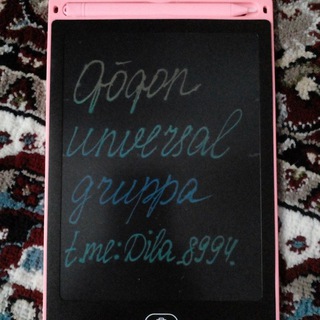 Qōqon
unversal
gruppa
t.me: Dila_8994.